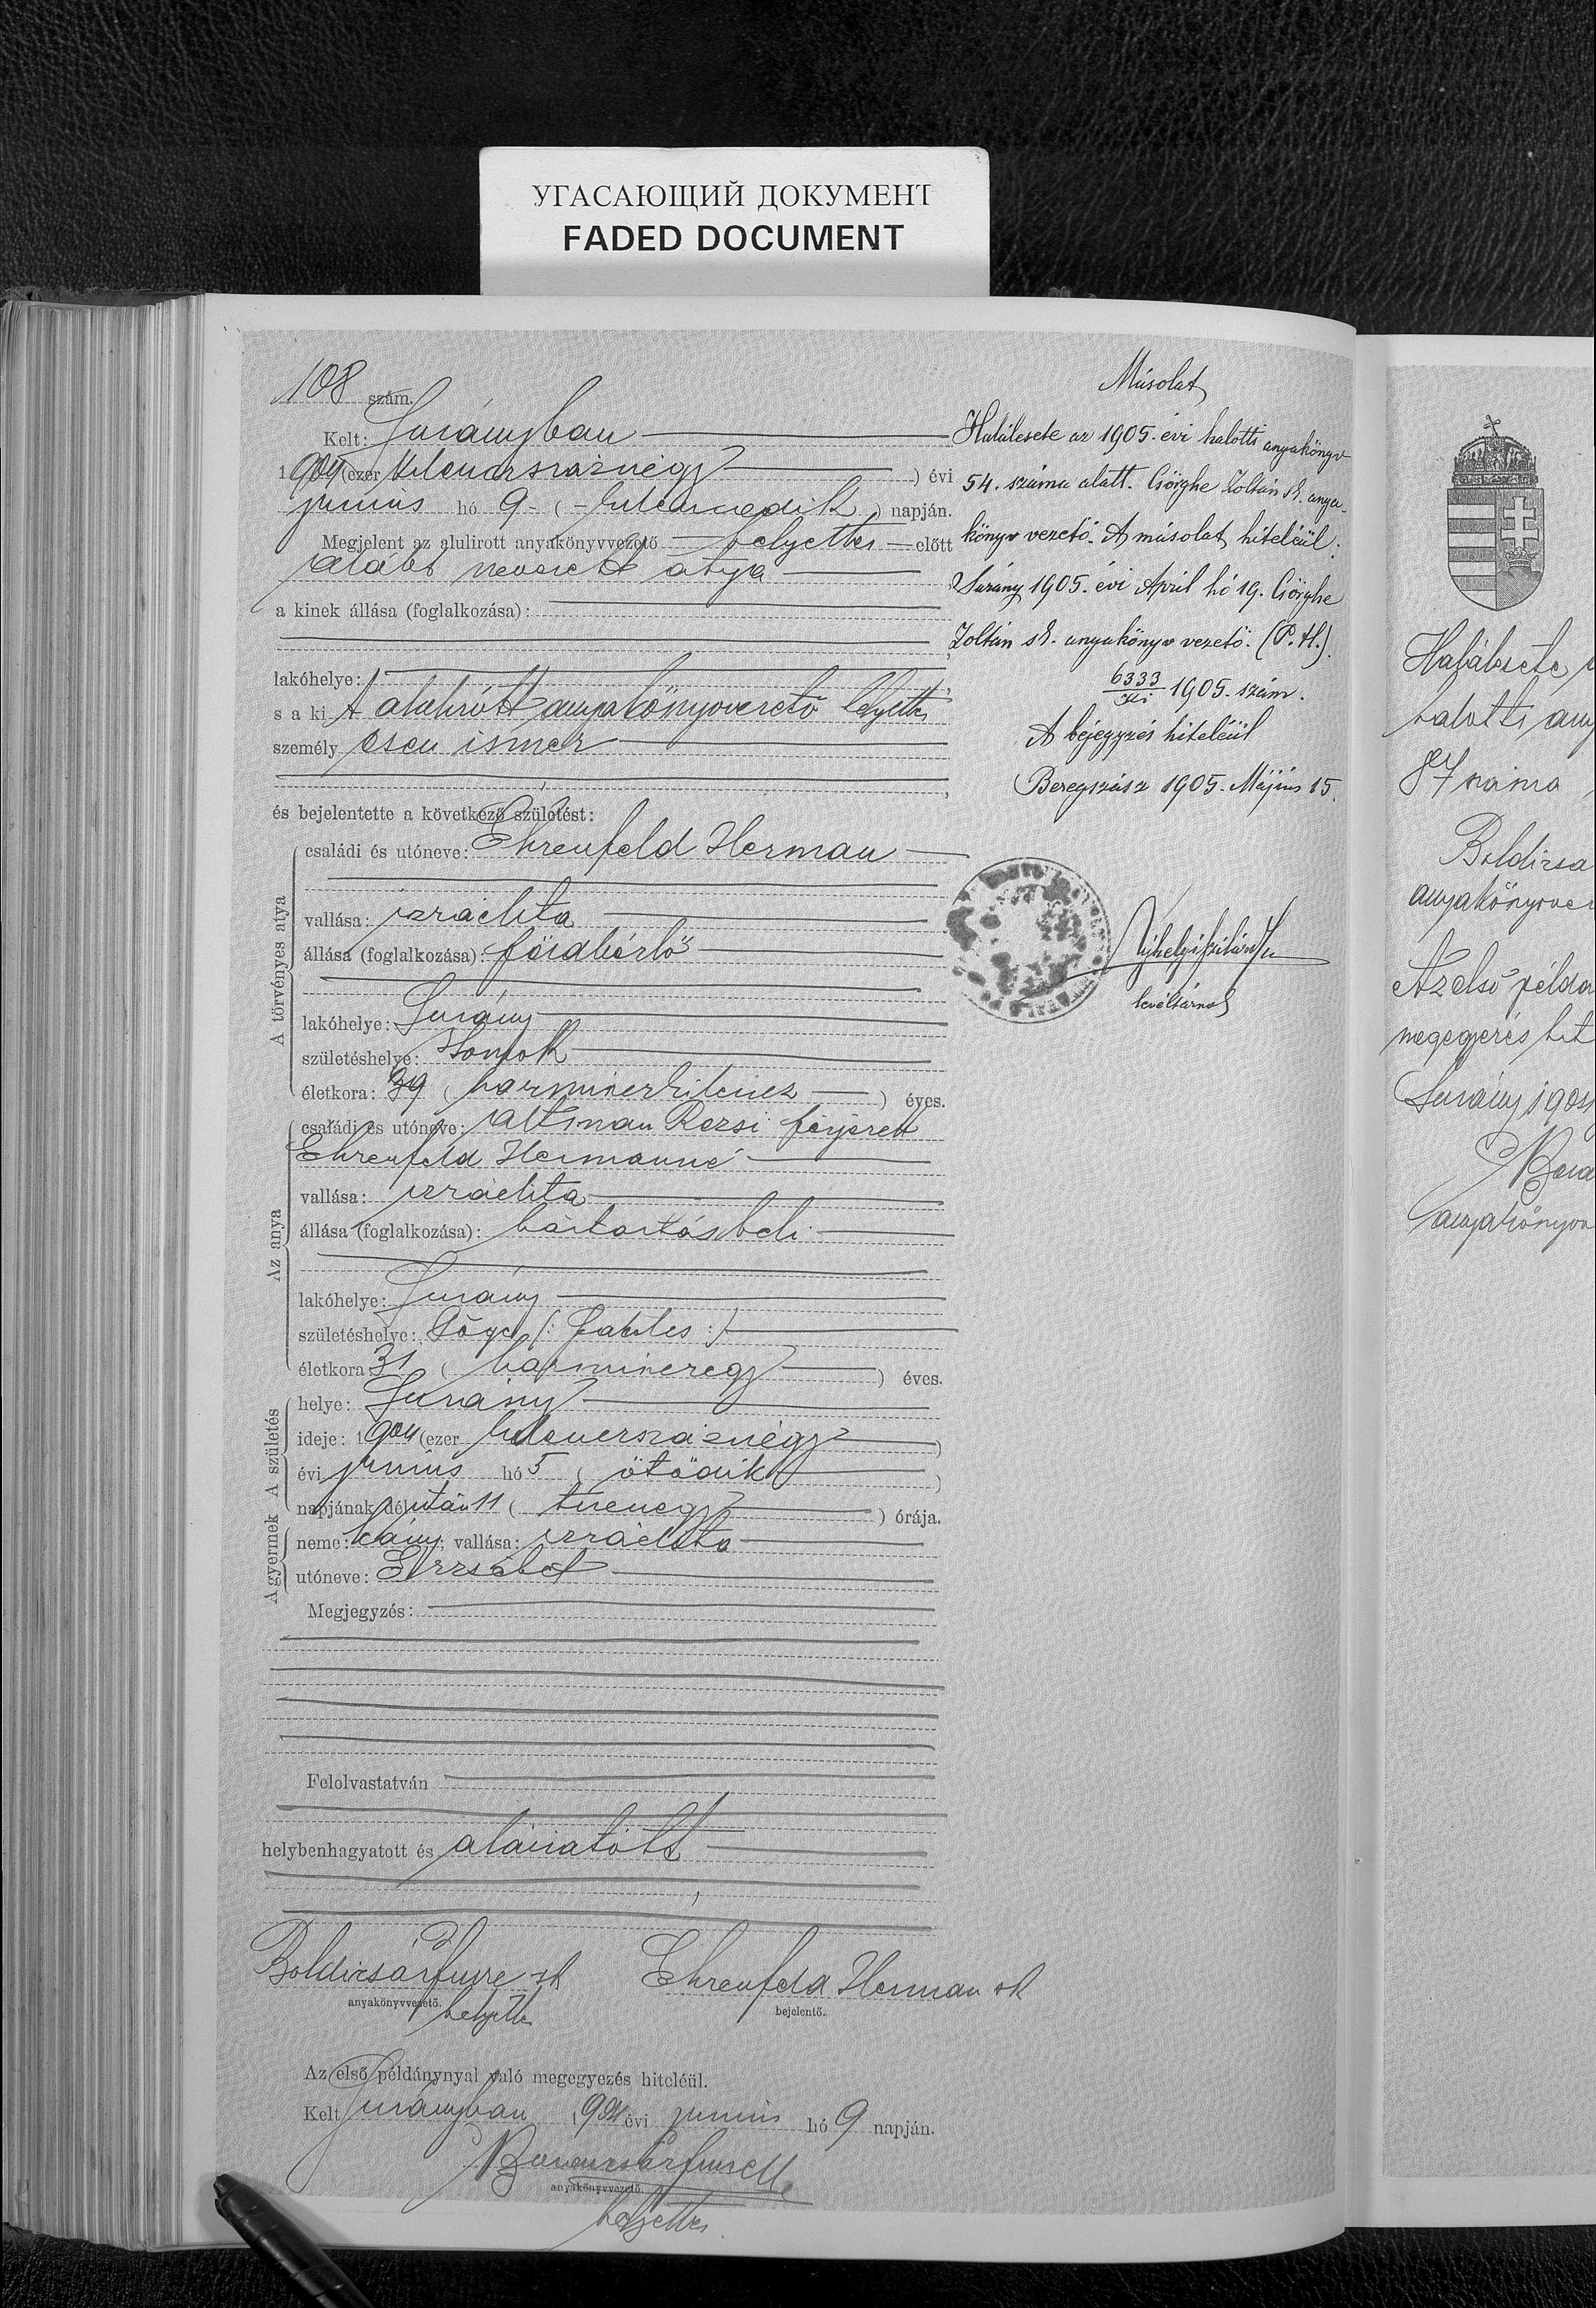 УГАСАЮЩИЙ ДОКУМЕНТ
FADED DOCUMENT
108 szám.
Kelt: Surányban
1904 (ezer kilencszáznégy) évi
június hó 9 (kilencedik) napján.
Megjelent az alulirott anyakönyvvezető helyettes előtt
alább nevezett atya
a kinek állása (foglalkozása):
lakóhelye:
s a ki t alulirótt anyakönyvvezető helyettes
személyesen ismer
és bejelentette a következő születést:
A törvényes atya
családi és utóneve: Ehrenfeld Herman
vallása: izraelita
állása (foglalkozása): földbérlő
lakóhelye: Surány
születéshelye: Homok
életkora: 39 (harminczkilencz) éves.
Az anya
családi és utóneve: Altman Rezsi férjezett
Ehrenfeld Hermanné
vallása: izraelita
állása (foglalkozása): háztartásbeli
lakóhelye: Surány
születéshelye:
életkora 31 (harminczegy) éves.
A születés
helye: Surány
ideje: 1904 (ezer kilenczszáznégy)
évi június hó 5 (ötödik)
napjának délután 11 (tizenegy) órája.
A gyermek
neme: leány; vallása: izraelita
utóneve: Erzsébet
Megjegyzés:
Felolvastatván
helybenhagyatott és aláiratott
Boldizsár Imre sk Ehrenfeld Herman sk
anyakönyvvezető. bejelentő.
helyettes
Az első példánynyal való megegyezés hiteléül.
Kelt Surányban 1904 évi június hó 9 napján.
Boldizsár Imre
anyakönyvvezető.
helyettes
Másolat
Halálesete az 1905. évi halotti anyakönyv
54. száma alatt. Györghe Zoltán sk. anya-
könyv vezető. A másolat hiteléül:
Surány 1905. évi April hó 19. Györghe
Zoltán sk. anyakönyv vezető. (P. H.)
6333
1905. szám.
A béjegyzés hiteléül
Beregszász 1905. Május 15.
levéltárnok
Halálesete
halotti any
87 száma
Boldizsá
anyakönyvve
Az első példá
megegyezés hit
Surány 1905
anyakönyvv